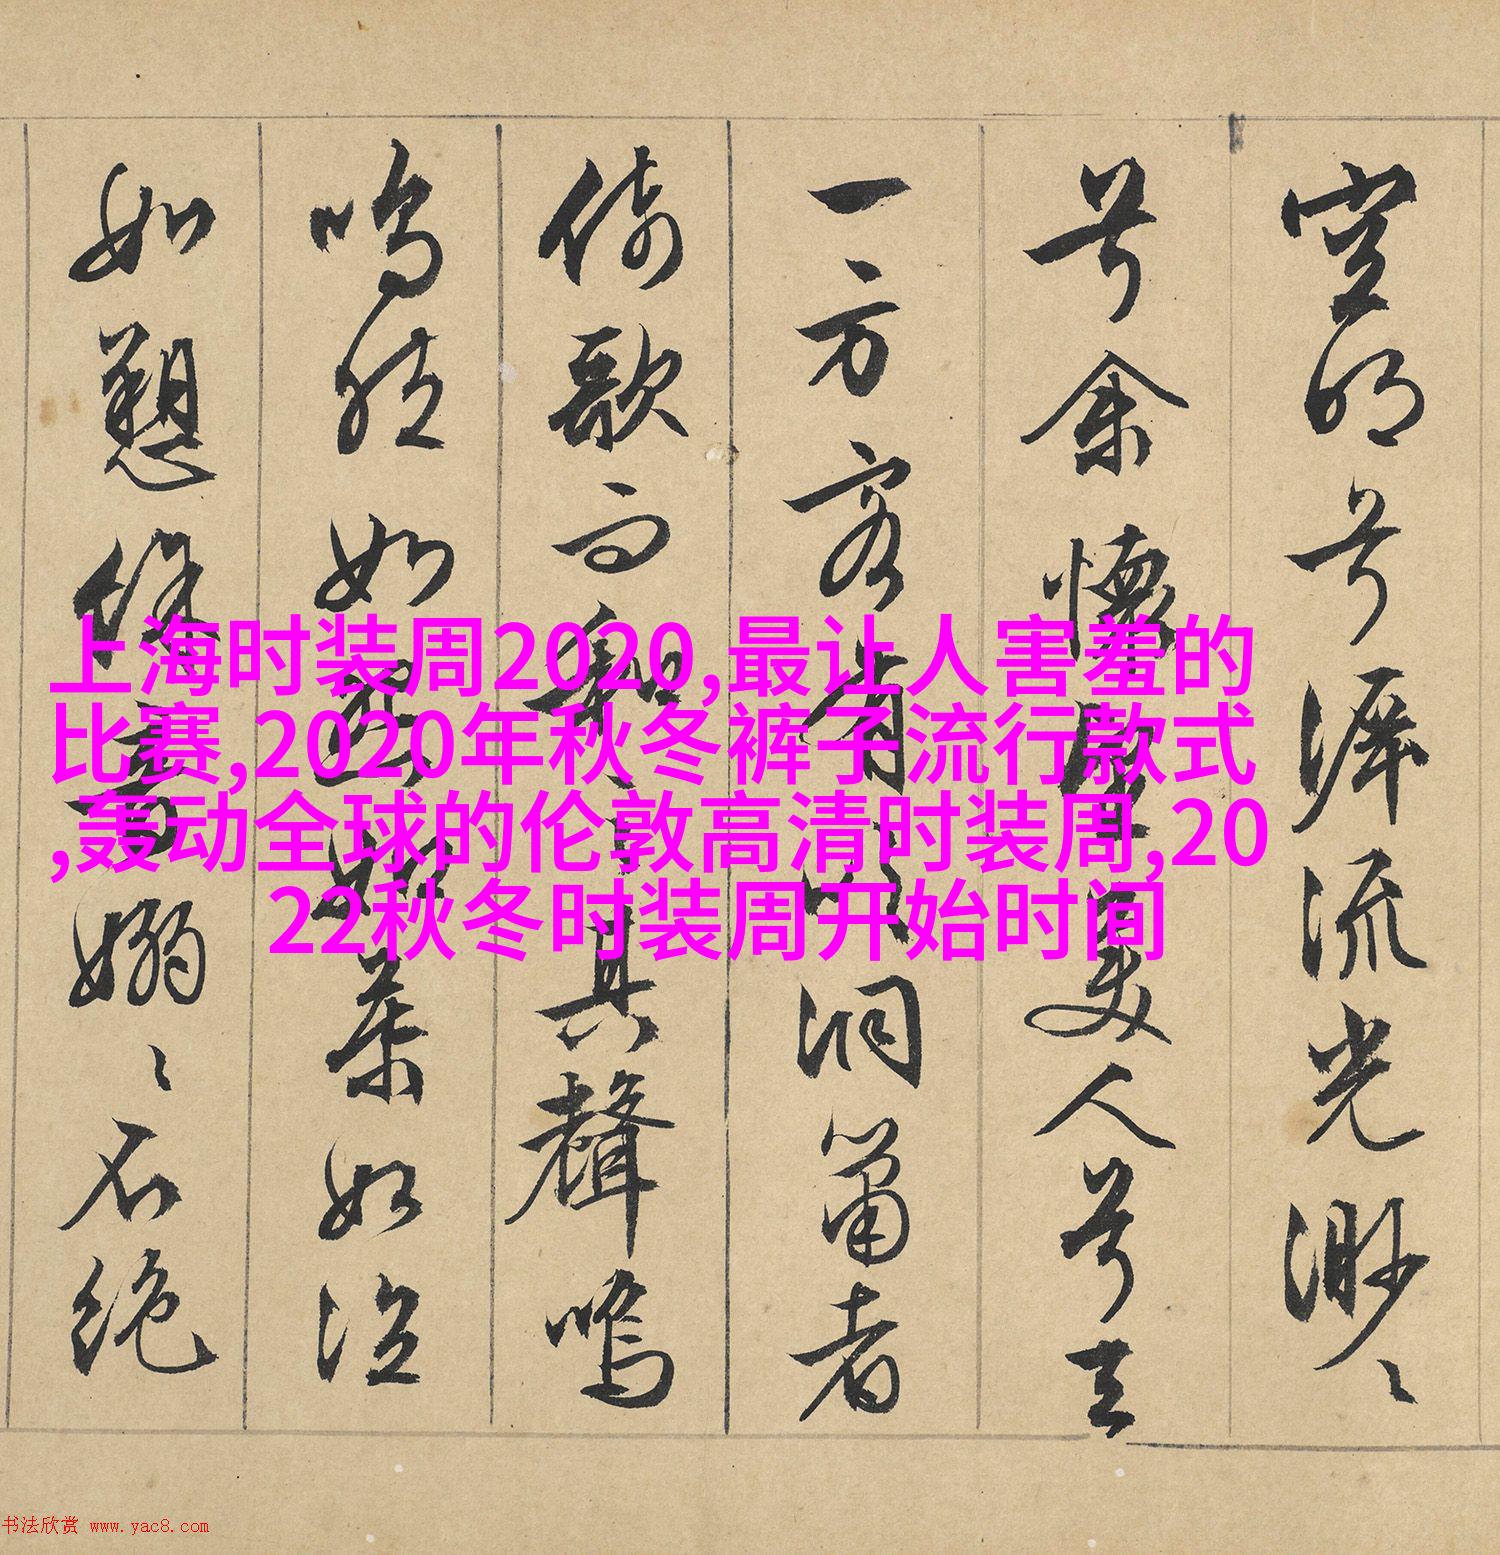 空明兮泝流光渺〻
兮余懷望美人兮天
一方客有吹洞簫者
倚歌而和之其聲嗚
嗚然如怨如慕如泣
如愬餘音嫋〻不絕
上海时装周2020,最让人害羞的
比赛,2020年秋冬裤子流行款式
,轰动全球的伦敦高清时装周,20
22秋冬时装周开始时间
书法欣赏 www.yac8.com